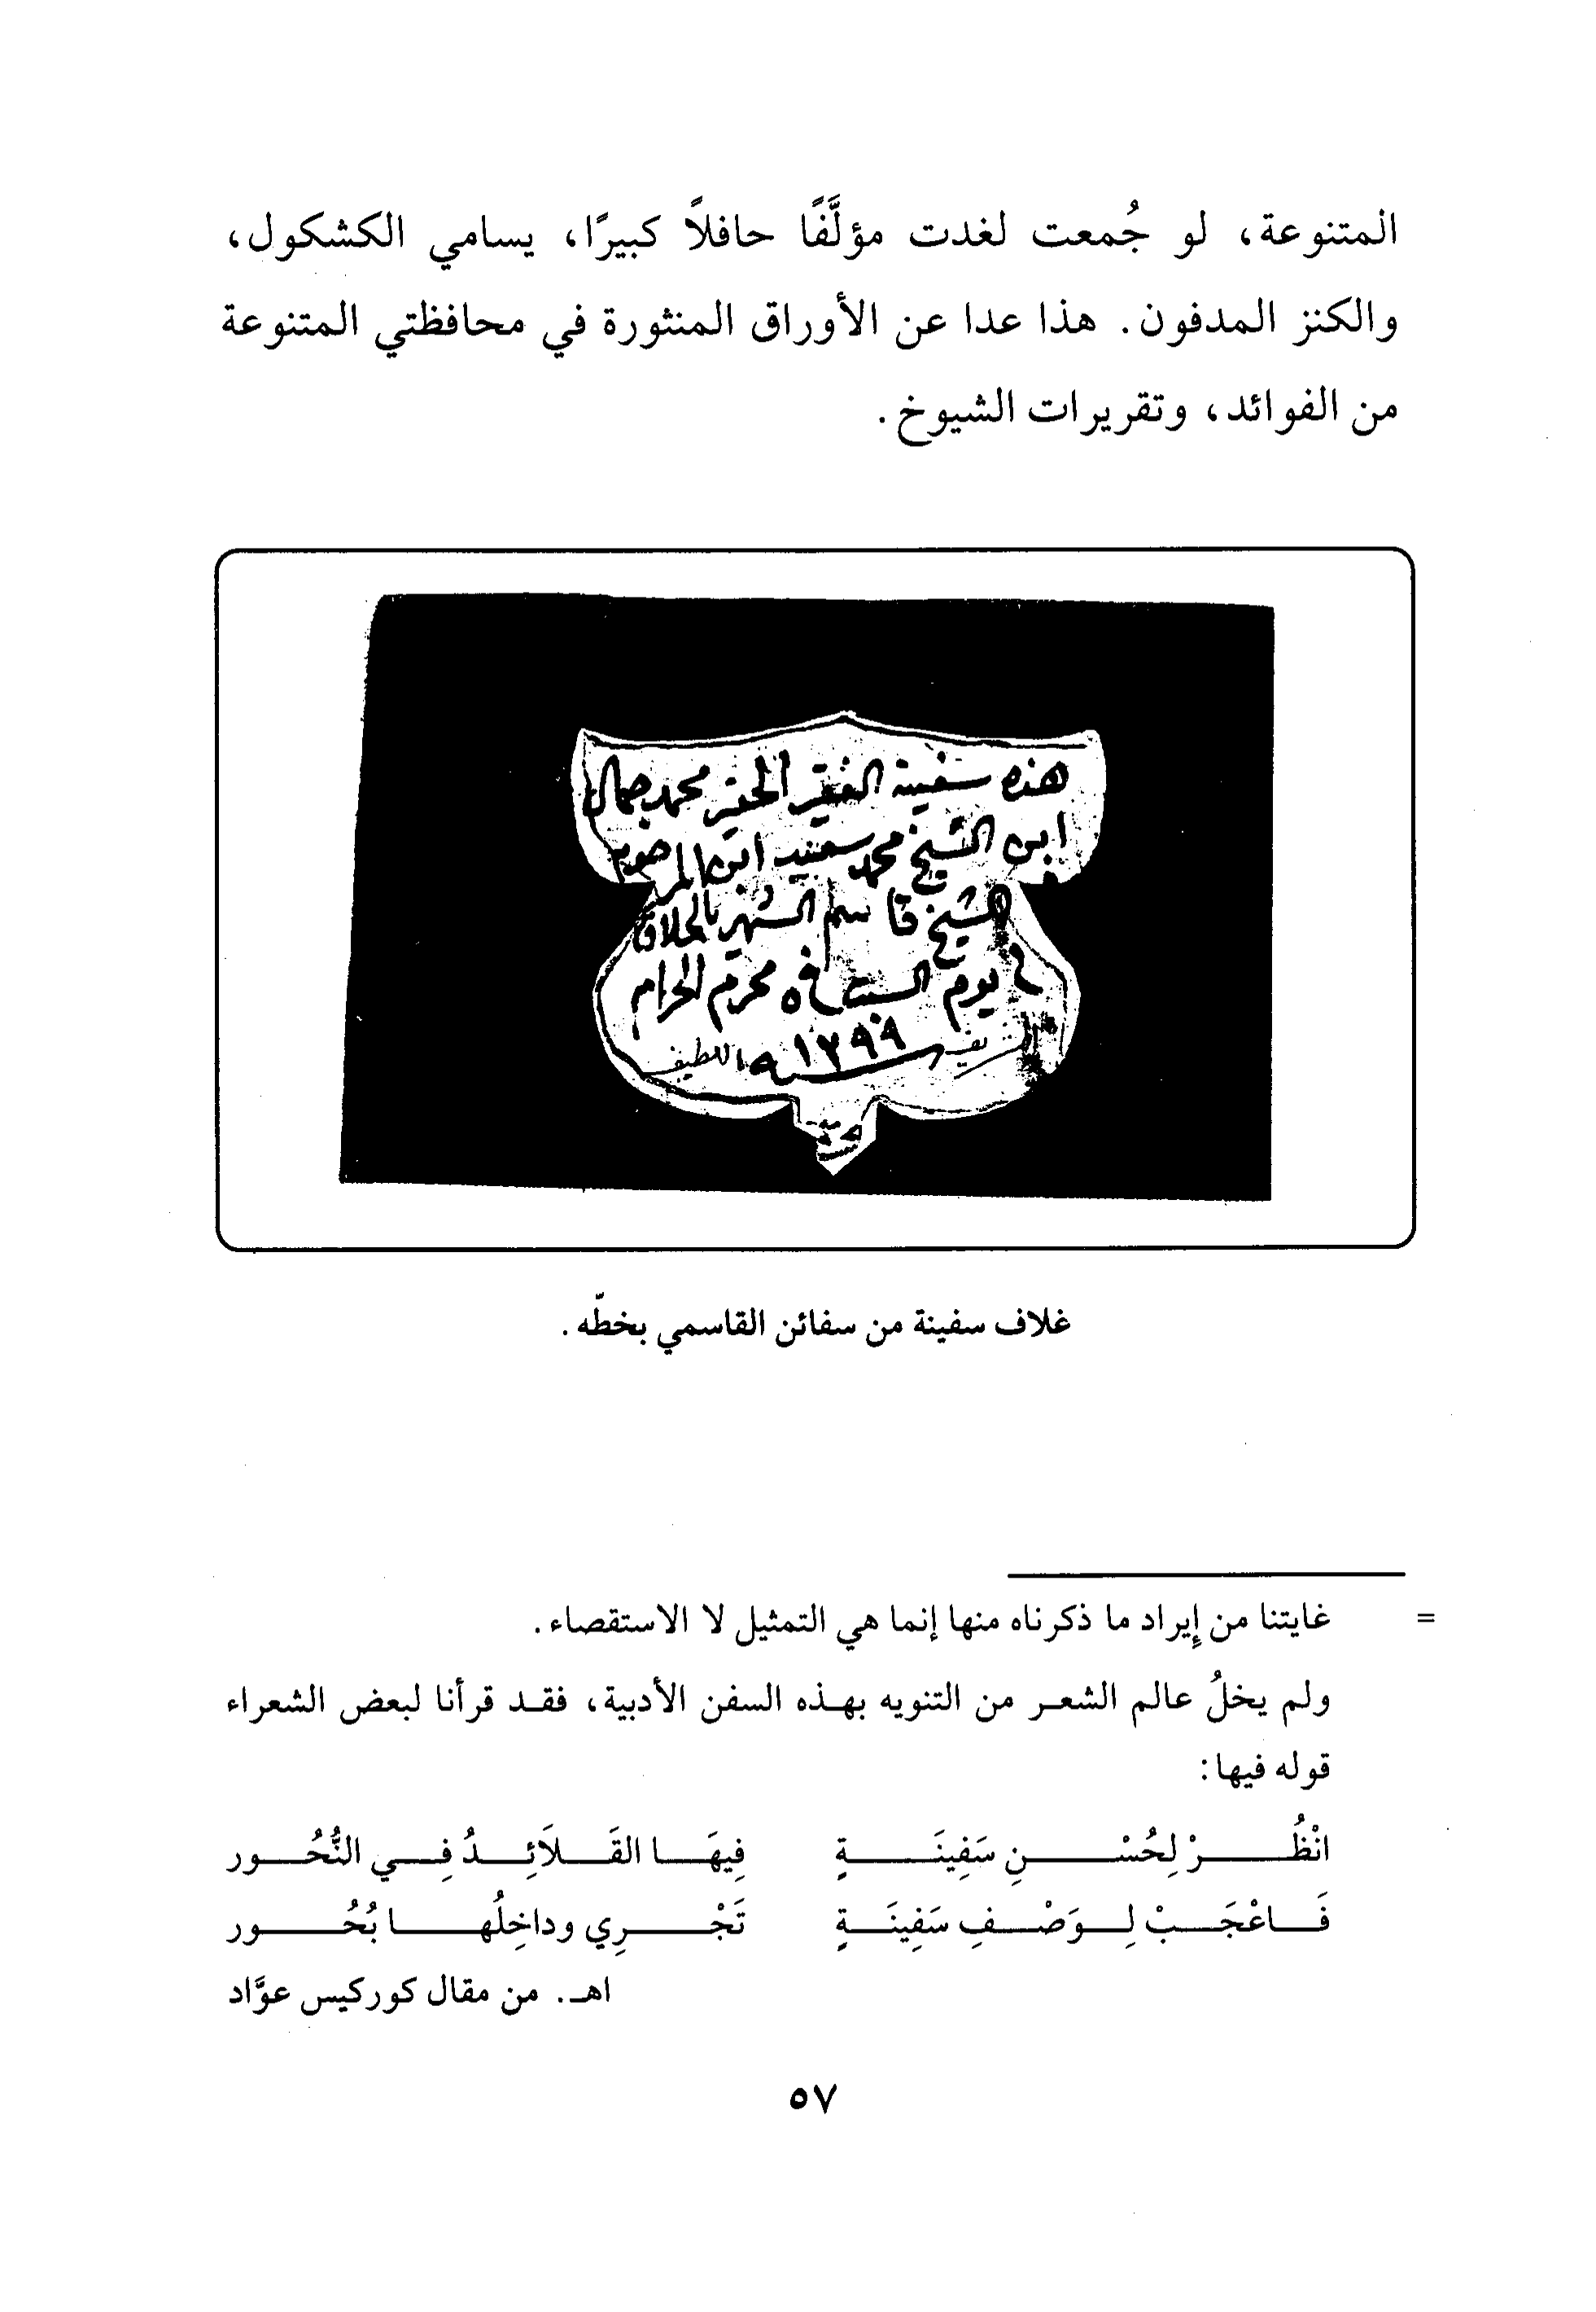 المتنوعة، لو جُمعت لغدت مؤلَّفًا حافلاً كبيرًا، يسامي الكشكول،
والكنز المدفون. هذا عدا عن الأوراق المنثورة في محافظتي المتنوعة
من الفوائد، وتقريرات الشيوخ.
هذه سفينة الفقير الحقير محمد جمال
ابن الشيخ محمد سعيد ابن المرحوم
الشيخ قاسم الشهير بالحلاق
في يوم السبت في ٥ محرم الحرام
الشريف سنة ١٢٩٩ اللطيف
غلاف سفينة من سفائن القاسمي بخطّه.
= غايتنا من إيراد ما ذكرناه منها إنما هي التمثيل لا الاستقصاء.
ولم يخلُ عالم الشعـر من التنويه بهـذه السفن الأدبية، فقـد قرأنا لبعض الشعراء
قوله فيها:
انْظُـرْ لِحُسْـنِ سَفِينَـةٍ فِيهَـا القَـلاَئِـدُ فِـي النُّحُـور
فَـاعْجَـبْ لِـوَصْـفِ سَفِينَـةٍ تَجْـرِي وداخِلُهـا بُحُـور
اهـ. من مقال كوركيس عوَّاد
٥٧